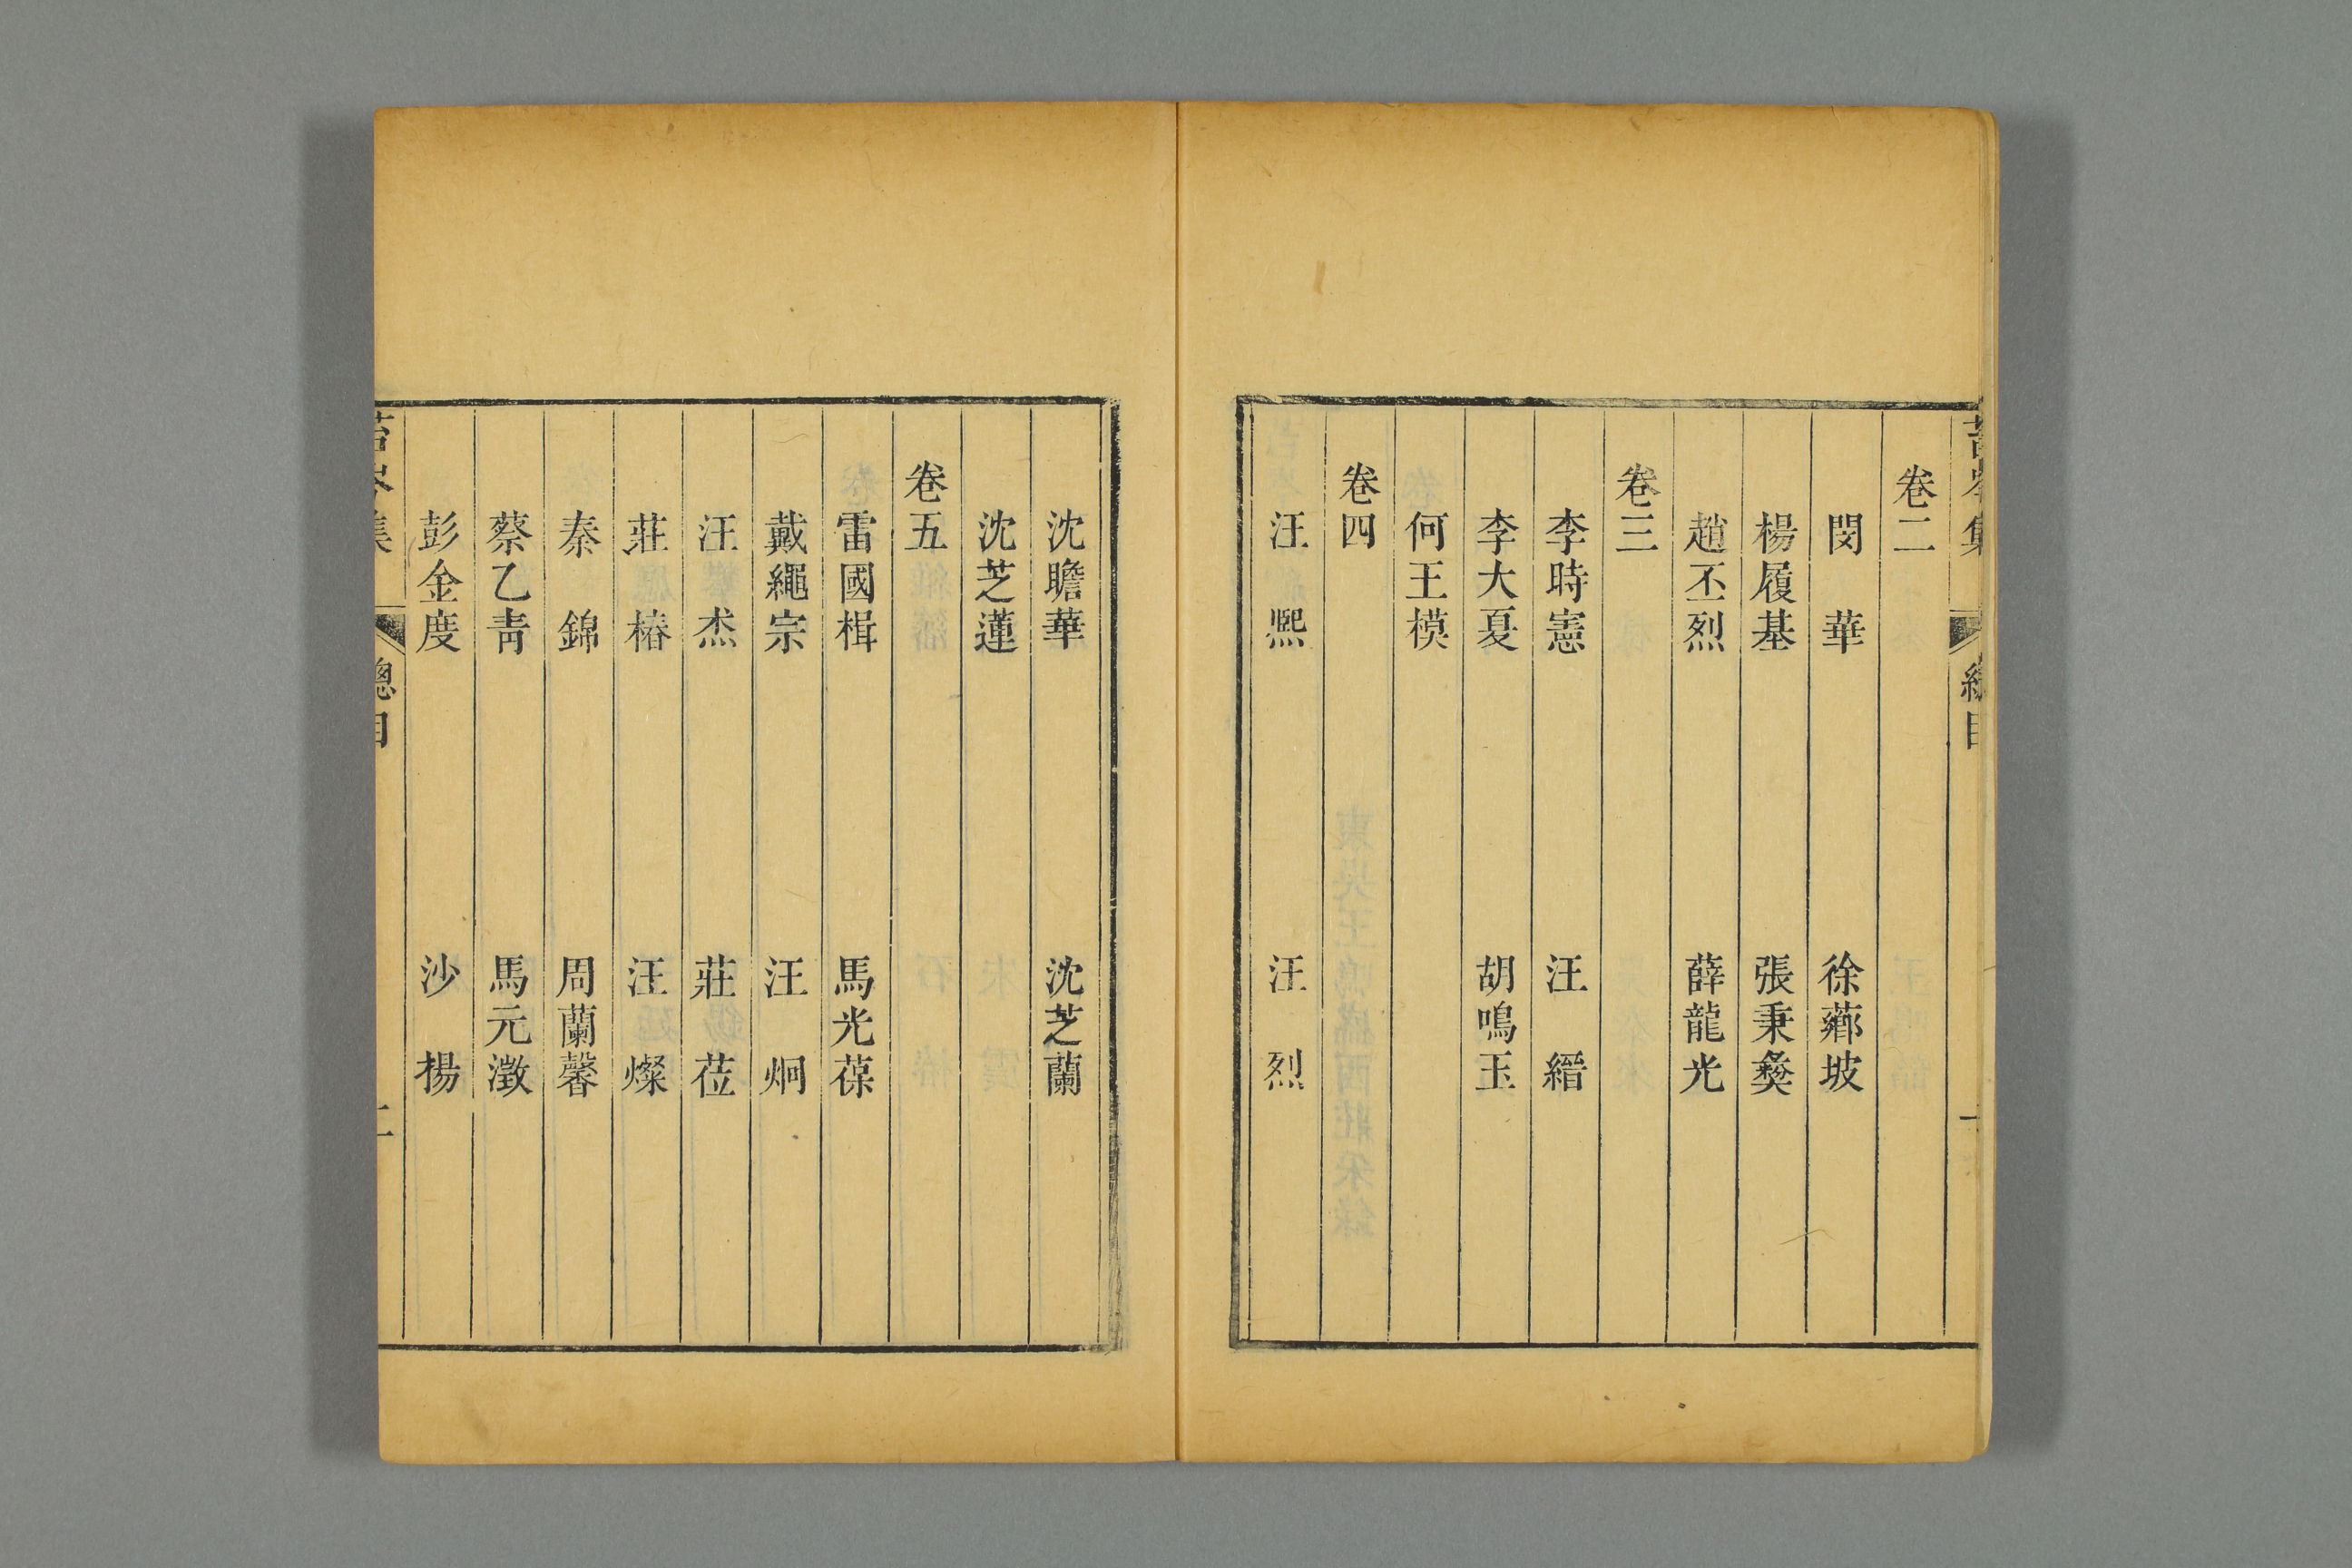 卷二
閔　華　徐薌坡
楊履基　張秉彝
趙丕烈　薛龍光
卷三
李時憲　汪　縉
李大夏　胡鳴玉
何王模
卷四
汪　熙　汪　烈
沈瞻華　沈芝蘭
沈芝蓮
卷五
雷國楫　馬光葆
戴繩宗　汪　炯
汪　杰　莊　莅
莊　椿　汪　燦
秦　錦　周蘭馨
蔡乙青　馬元澂
彭金度　沙　揚
苔岑集　總目　二